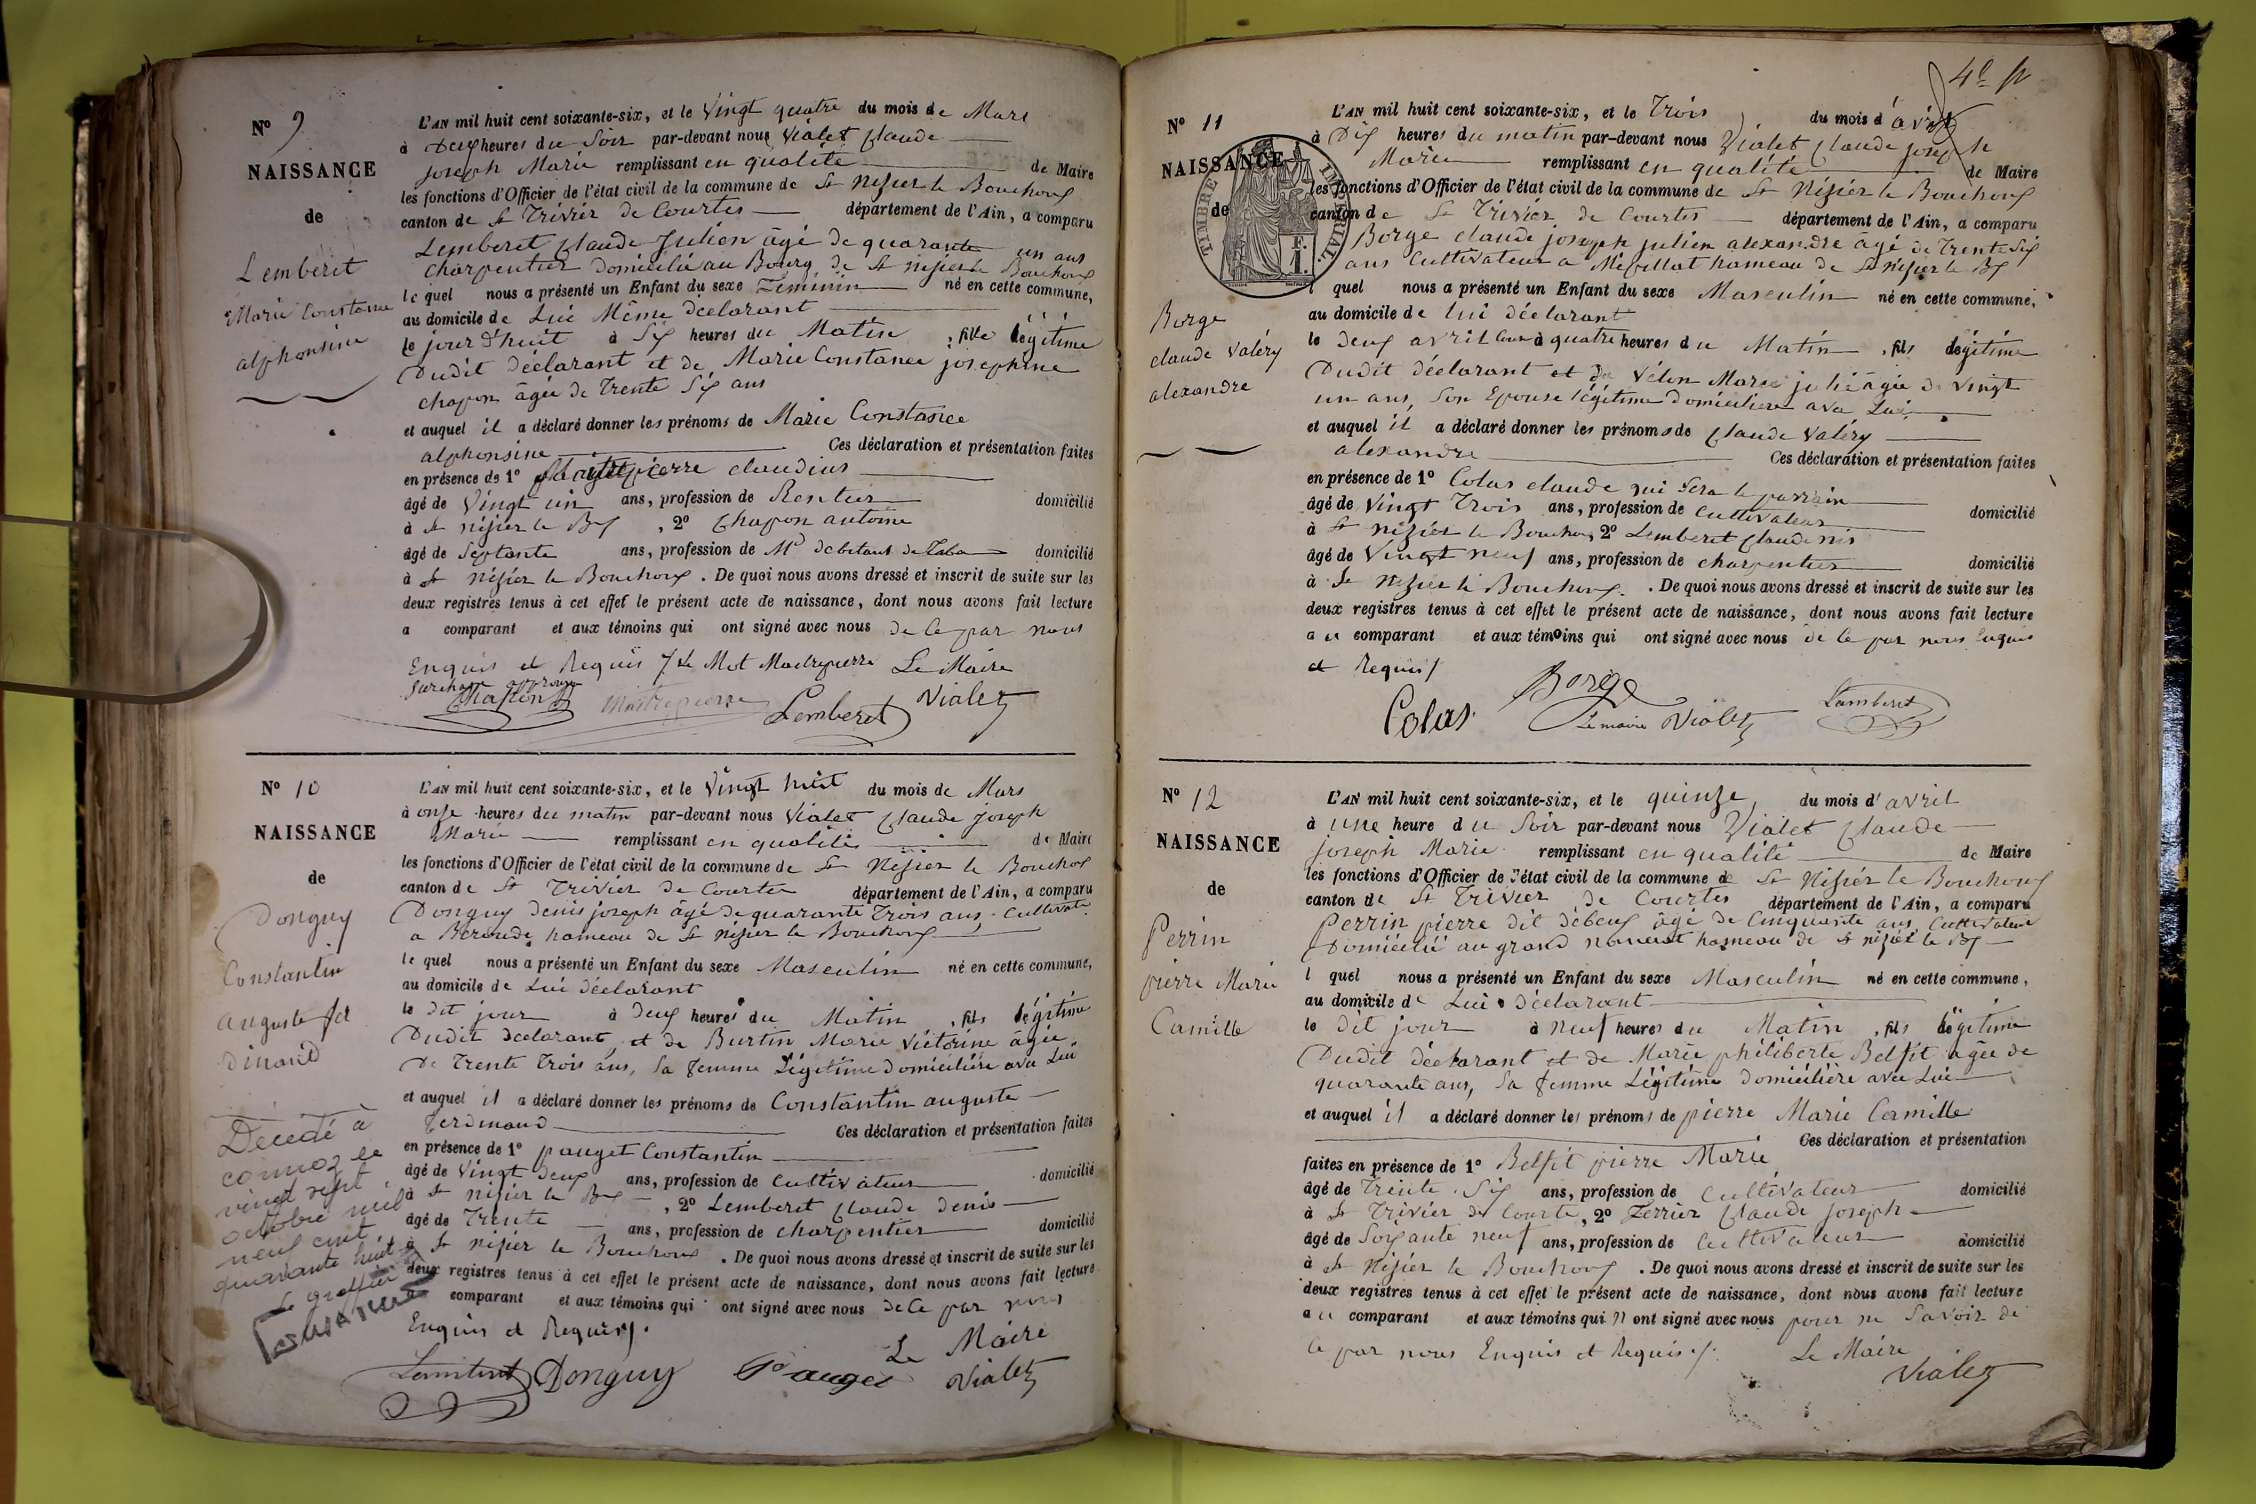 Nº 9
NAISSANCE
de
Lemberet
Marie Constance
alphonsine
L'AN mil huit cent soixante-six, et le Vingt quatre du mois de Mars
à Deux heures du Soir par-devant nous Vialet Claude
joseph Marie remplissant en qualité de Maire
les fonctions d'Officier de l'état civil de la commune de St Nizier le Bouchoux
canton de St Trivier de Courtes département de l'Ain, a comparu
Lemberet Claude Julien âgé de quarante un ans
charpentier domicilié au Bourg de St nizier le Bouchoux
lequel nous a présenté un Enfant du sexe Féminin né en cette commune,
au domicile de Lui Même déclarant
le jour d'huit à Six heures du Matin, fille légitime
Dudit déclarant et de Marie Constance josephine
chapon âgée de Trente Six ans
et auquel il a déclaré donner les prénoms de Marie Constance
alphonsine Ces déclaration et présentation faites
en présence de 1º pierre claudius
âgé de Vingt un ans, profession de Rentier domicilié
à St nizier le Bx, 2º Chapon antoine
âgé de Septante ans, profession de Md debitant de Taba domicilié
à St nizier le Bouchoux. De quoi nous avons dressé et inscrit de suite sur les
deux registres tenus à cet effet le présent acte de naissance, dont nous avons fait lecture
a comparant et aux témoins qui ont signé avec nous de ce par nous
Enquis et Requis / le Mot Maitrepierre Le Maire
Surcharge approuvé
Chapon Maitrepierre Lemberet Vialet
Nº 10
NAISSANCE
de
Donguy
Constantin
auguste fer
dinand
Décédé à
cormoz le
vingt sept
octobre mil
neuf cent
quarante huit
Le greffier
L'AN mil huit cent soixante-six, et le Vingt huit du mois de Mars
à onze heures du matin par-devant nous Vialet Claude joseph
Marie remplissant en qualités de Maire
les fonctions d'Officier de l'état civil de la commune de St Nizier le Bouchox
canton de St Trivier de Courtes département de l'Ain, a comparu
Donguy denis joseph âgé de quarante Trois ans, Cultivate
a Beroude hameau de St nizier le Bouchoux
le quel nous a présenté un Enfant du sexe Masculin né en cette commune,
au domicile de Lui déclarant
le dit jour à deux heures du Matin, fils légitime
Dudit déclarant et de Burtin Marie Victorine âgée
De Trente Trois ans, Sa femme Légitime domicilière avec Lui
et auquel il a déclaré donner les prénoms de Constantin auguste
Ferdinand Ces déclaration et présentation faites
en présence de 1º pauget Constantin
âgé de Vingt deux ans, profession de cultivateur domicilié
à St nizier le Bx, 2º Lemberet Claude denis
âgé de Trente ans, profession de charpentier domicilié
à St nizier le Bouchoux. De quoi nous avons dressé et inscrit de suite sur les
deux registres tenus à cet effet le présent acte de naissance, dont nous avons fait lecture
comparant et aux témoins qui ont signé avec nous de ce par nous
Enquis et Requis /.
Le Maire
Lemberet Donguy Pauget Vialet
4e
Nº 11
NAISSANCE
de
TIMBRE IMPÉRIAL
Borge
claude Valéry
alexandre
L'AN mil huit cent soixante-six, et le Trois du mois d'avril
à Dix heures du matin par-devant nous Vialet Claude joseph
Marie remplissant en qualité de Maire
les fonctions d'Officier de l'état civil de la commune de St Nizier le Bouchoux
canton de St Trivier de Courtes département de l'Ain, a comparu
Borge claude joseph julien alexandre âgé de Trente Six
ans Cultivateur a Mépillat hameau de St Nizier le Bx
l quel nous a présenté un Enfant du sexe Masculin né en cette commune,
au domicile de lui déclarant
le deux avril Cour à quatre heures du Matin, fils légitime
Dudit déclarant et de Vélon Marie julie âgée de vingt
un ans, Son Epouse légitime domicilière avec Lui
et auquel il a déclaré donner les prénoms de Claude Valéry
alexandre Ces déclaration et présentation faites
en présence de 1º Colas claude qui Sera le parrain
âgé de Vingt Trois ans, profession de cultivateur domicilié
à St Nizier le Bouchou, 2º Lemberet Claude nis
âgé de Vingt neuf ans, profession de charpentier domicilié
à St Nizier le Bouchoux. De quoi nous avons dressé et inscrit de suite sur les
deux registres tenus à cet effet le présent acte de naissance, dont nous avons fait lecture
au comparant et aux témoins qui ont signé avec nous de ce par nous Enquis
et Requis /
Borge
Colas Le maire Vialet Lamberet
Nº 12
NAISSANCE
de
Perrin
pierre Marie
Camille
L'AN mil huit cent soixante-six, et le quinze du mois d'avril
à une heure du Soir par-devant nous Vialet Claude
joseph Marie remplissant en qualité de Maire
les fonctions d'Officier de l'état civil de la commune de St Nizier le Bouchoux
canton de St Trivier de Courtes département de l'Ain, a comparu
Perrin pierre dit débeuf âgé de Cinquante ans, Cultivateur
Domicilié au grand hameau de St nizier le Bx
l quel nous a présenté un Enfant du sexe Masculin né en cette commune,
au domicile de Lui déclarant
le dit jour à neuf heures du Matin, fils légitime
Dudit déclarant et de Marie philiberte Belfit âgée de
quarante ans, Sa femme Légitime domicilière avec Lui
et auquel il a déclaré donner les prénoms de pierre Marie Camille
Ces déclaration et présentation
faites en présence de 1º Belfit pierre Marie
âgé de Trente Six ans, profession de cultivateur domicilié
à St Trivier de Courte, 2º Ferrier Claude joseph
âgé de Soixante neuf ans, profession de Cultivateur domicilié
à St Nizier le Bouchoux. De quoi nous avons dressé et inscrit de suite sur les
deux registres tenus à cet effet le présent acte de naissance, dont nous avons fait lecture
au comparant et aux témoins qui n ont signé avec nous pour ne Savoir de
Ce par nous Enquis et Requis /. Le Maire
Vialet